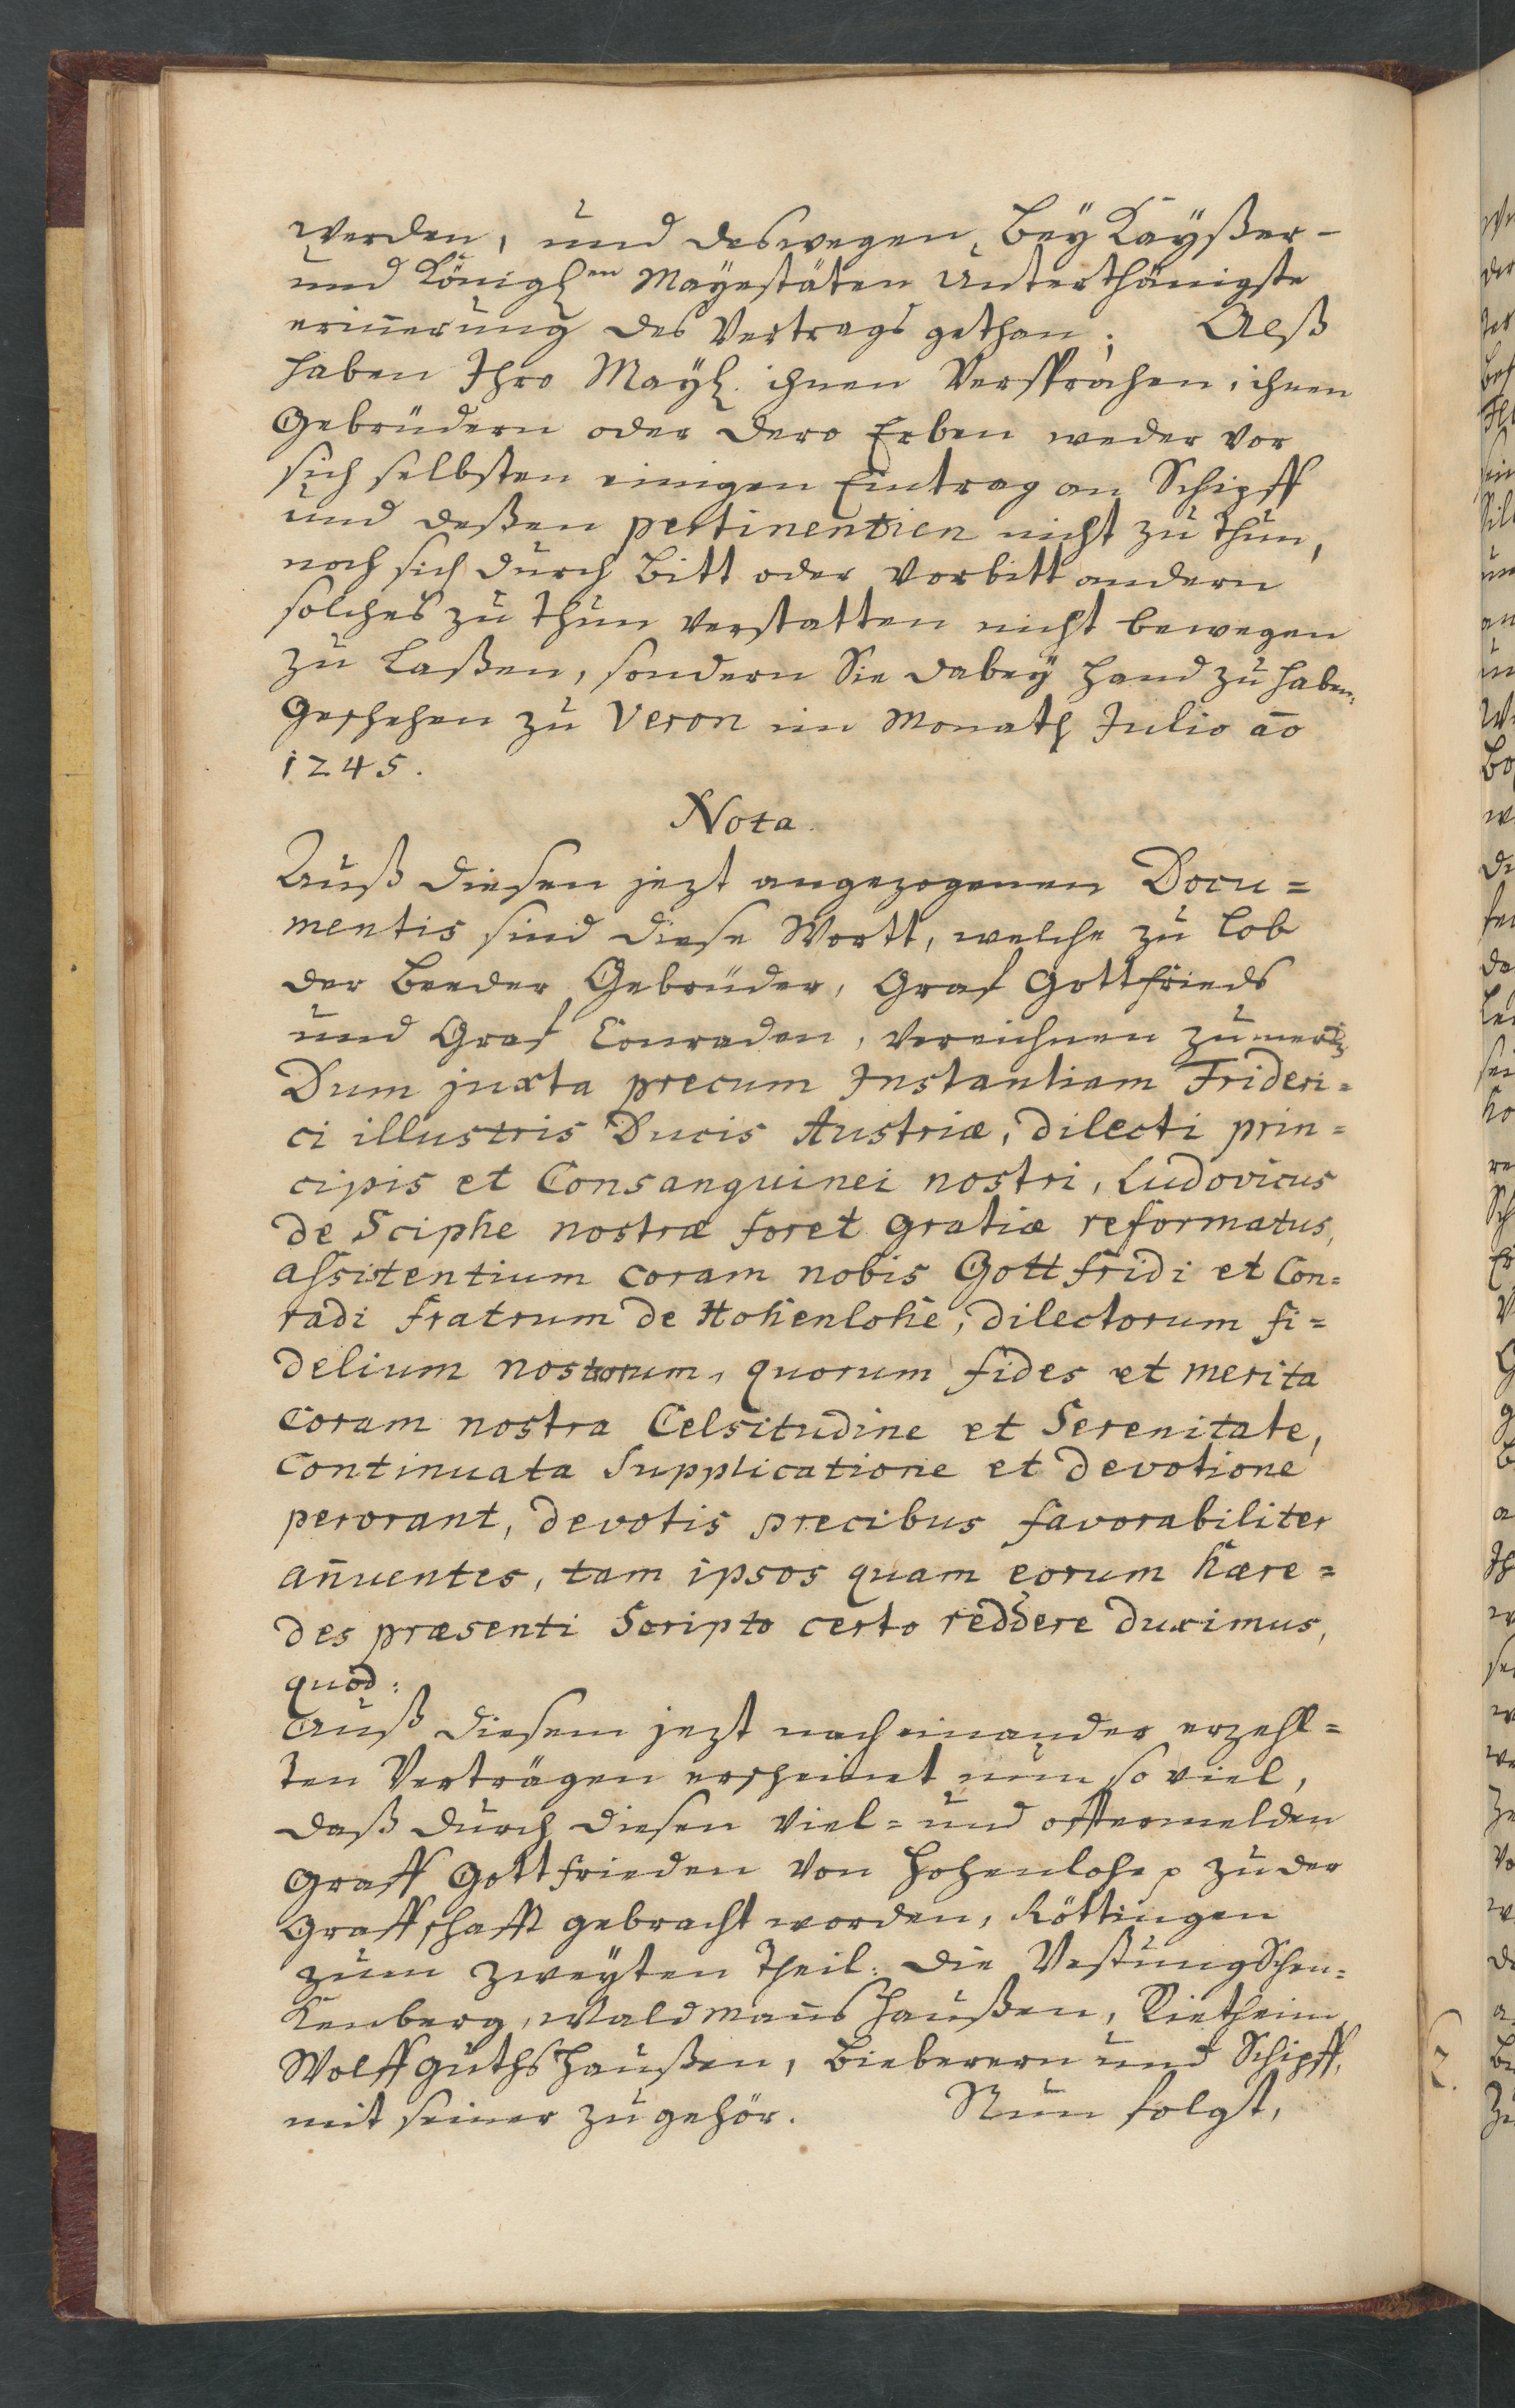 werden, und deswegen, bey Kayßer-
und Königl.en Mayestäten Unterthänigste
eriñerung des Vertrags gethan; Alß
haben Ihro Mayl. ihnen Versprochen, ihnen
Gebrüdern oder dero Erben weder vor
sich selbsten einigen Eintrag an Schipff
und deßen pertinentien nicht zu thun,
noch sich durch bitt oder Vorbitt andern
solches zu thun verstatten nicht bewegen
zu laßen, sondern Sie dabey hand zu haben,
Geschehen zu Veron im Monath Julio aō
1245.
Nota.
Auß diesen jezt angezogenen Docu=
mentis sind diese Wortt, welche zu lob
der beeder Gebrüder, Graf Gottfrieds
und Graf Conraden, Vereichnen zu
Dum juxta precum Instantiam Frideri=
ci illustris Ducis Austriæ, dilecti prin=
cipis et Consanguinei nostri, Ludovicus
de Sciphe nostræ foret gratiæ reformatus,
assistentium coram nobis Gottfridi et Con=
radi fratrum de Hohenlohe, dilectorum fi=
delium nostrorum, quorum fides et merita
Coram nostra Celsitudine et Serenitate,
Continuata Supplicatione et devotione
perorant, devotis precibus favorabiliter
añuentes, tam ipsos quam eorum hære=
des præsenti Scripto certo reddere duximus,
quod:
Auß diesem jezt nacheinander erzehl=
ten Verträgen erscheinet nun so viel,
daß durch diesen Viel= und offtermelden
Graff Gottfrieden Von Hohenlohe p zu der
Graffschafft gebracht worden, Röttingen
zum zweyten Theil: die Vestung Schen=
Kenberg, Waldmañshaußen, Rietheim
Wolffguthshaußen, Bieberern und Schipff,
mit seiner zugehör. Nun folgt,